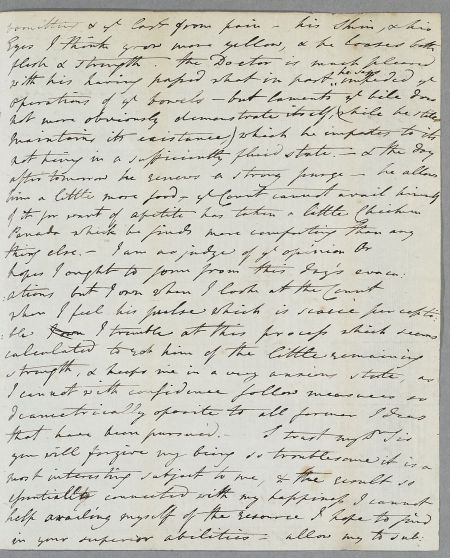 vomitted & ye last from pain – his Skin, & his
Eyes I think grow more yellow, & he looses both
flesh & strength. the Doctor is much pleased
with his having passed what in part "he says" impeded ye
operations of ye bowels – but laments ye bile does
not more obviously demonstrate itself, (while he still
maintains its existance) which he imputes to its
not being in a sufficiently fluid state. – & the day
after tomorrow he renews a strong purge – he allows
him a little more food – ye Count cannot avail himself
of it for want of apetite has taken a little Chicken
Panada which he finds more comforting than any
thing else. – I am no judge of ye opinion Or
hopes I ought to form from this day's evacu:
:ations but I own when I look at the Count
when I feel his pulse which is scarce percepti:
:ble I tremble at this process which seems
calculated to rob him of the little remaining
strength, & keeps me in a very anxious state, as
I cannot with confidence follow measures so
diametrically oposite to all former Ideas
that have been pursued. – I trust my Dr Sir
you will forgive my being so troublesome it is a
most interesting subject to me, & the result so
essentially connected with my happiness I cannot
help availing myself of the resource I hope to find
in your superior abilities – allow my to sub: